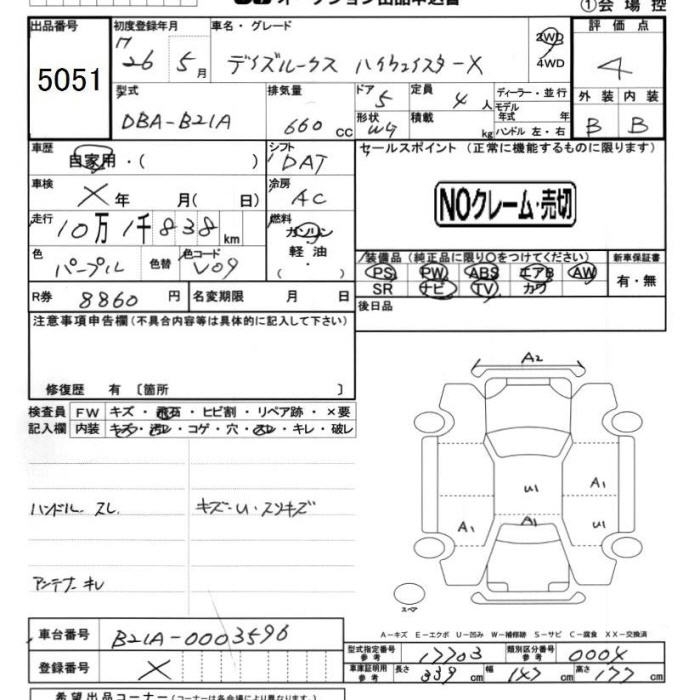 ①会場控
出品番号
初度登録年月
車名・グレード
評価点
5051
H
26 5月
デイズルークス ハイウェイスターX
2WD
4WD
4
型式
排気量
ドア
定員
ディーラー・並行
外装
内装
DBA-B21A
660 cc
5
4人
モデル年式 年
形状
積載
kg
ハンドル 左・右
B
B
車歴
自家用・( )
シフト
DAT
セールスポイント (正常に機能するものに限ります)
車検
X年 月( 日)
冷房
AC
NOクレーム・売切
走行
10万1千838km
燃料
ガソリン
軽油
( ・ )
色
パープル
色替
色コード
V09
装備品 (純正品に限り〇をつけてください)
新車保証書
PS PW ABS エアB AW
SR ナビ TV カワ
有・無
R券
8860円
名変期限 月 日
後日品
注意事項申告欄(不具合内容等は具体的に記入して下さい)
修復歴 有 〔箇所 〕
検査員
記入欄
FW
キズ・飛石・ヒビ割・リペア跡・×要
内装
キズ・汚レ・コゲ・穴・スレ・キレ・破レ
A2
U1
A1
A1
A1
U1
ハンドル スレ
キズ-U・スリキズ
アンテナ キレ
スペア
A-キズ E-エクボ U-凹み W-補修跡 S-サビ C-腐食 XX-交換済
車台番号
B21A-0003596
登録番号
X
型式指定番号 参考
17703
類別区分番号 参考
000X
車庫証明用 参考
長さ 339cm
幅 147cm
高さ 177cm
希望出品コーナー